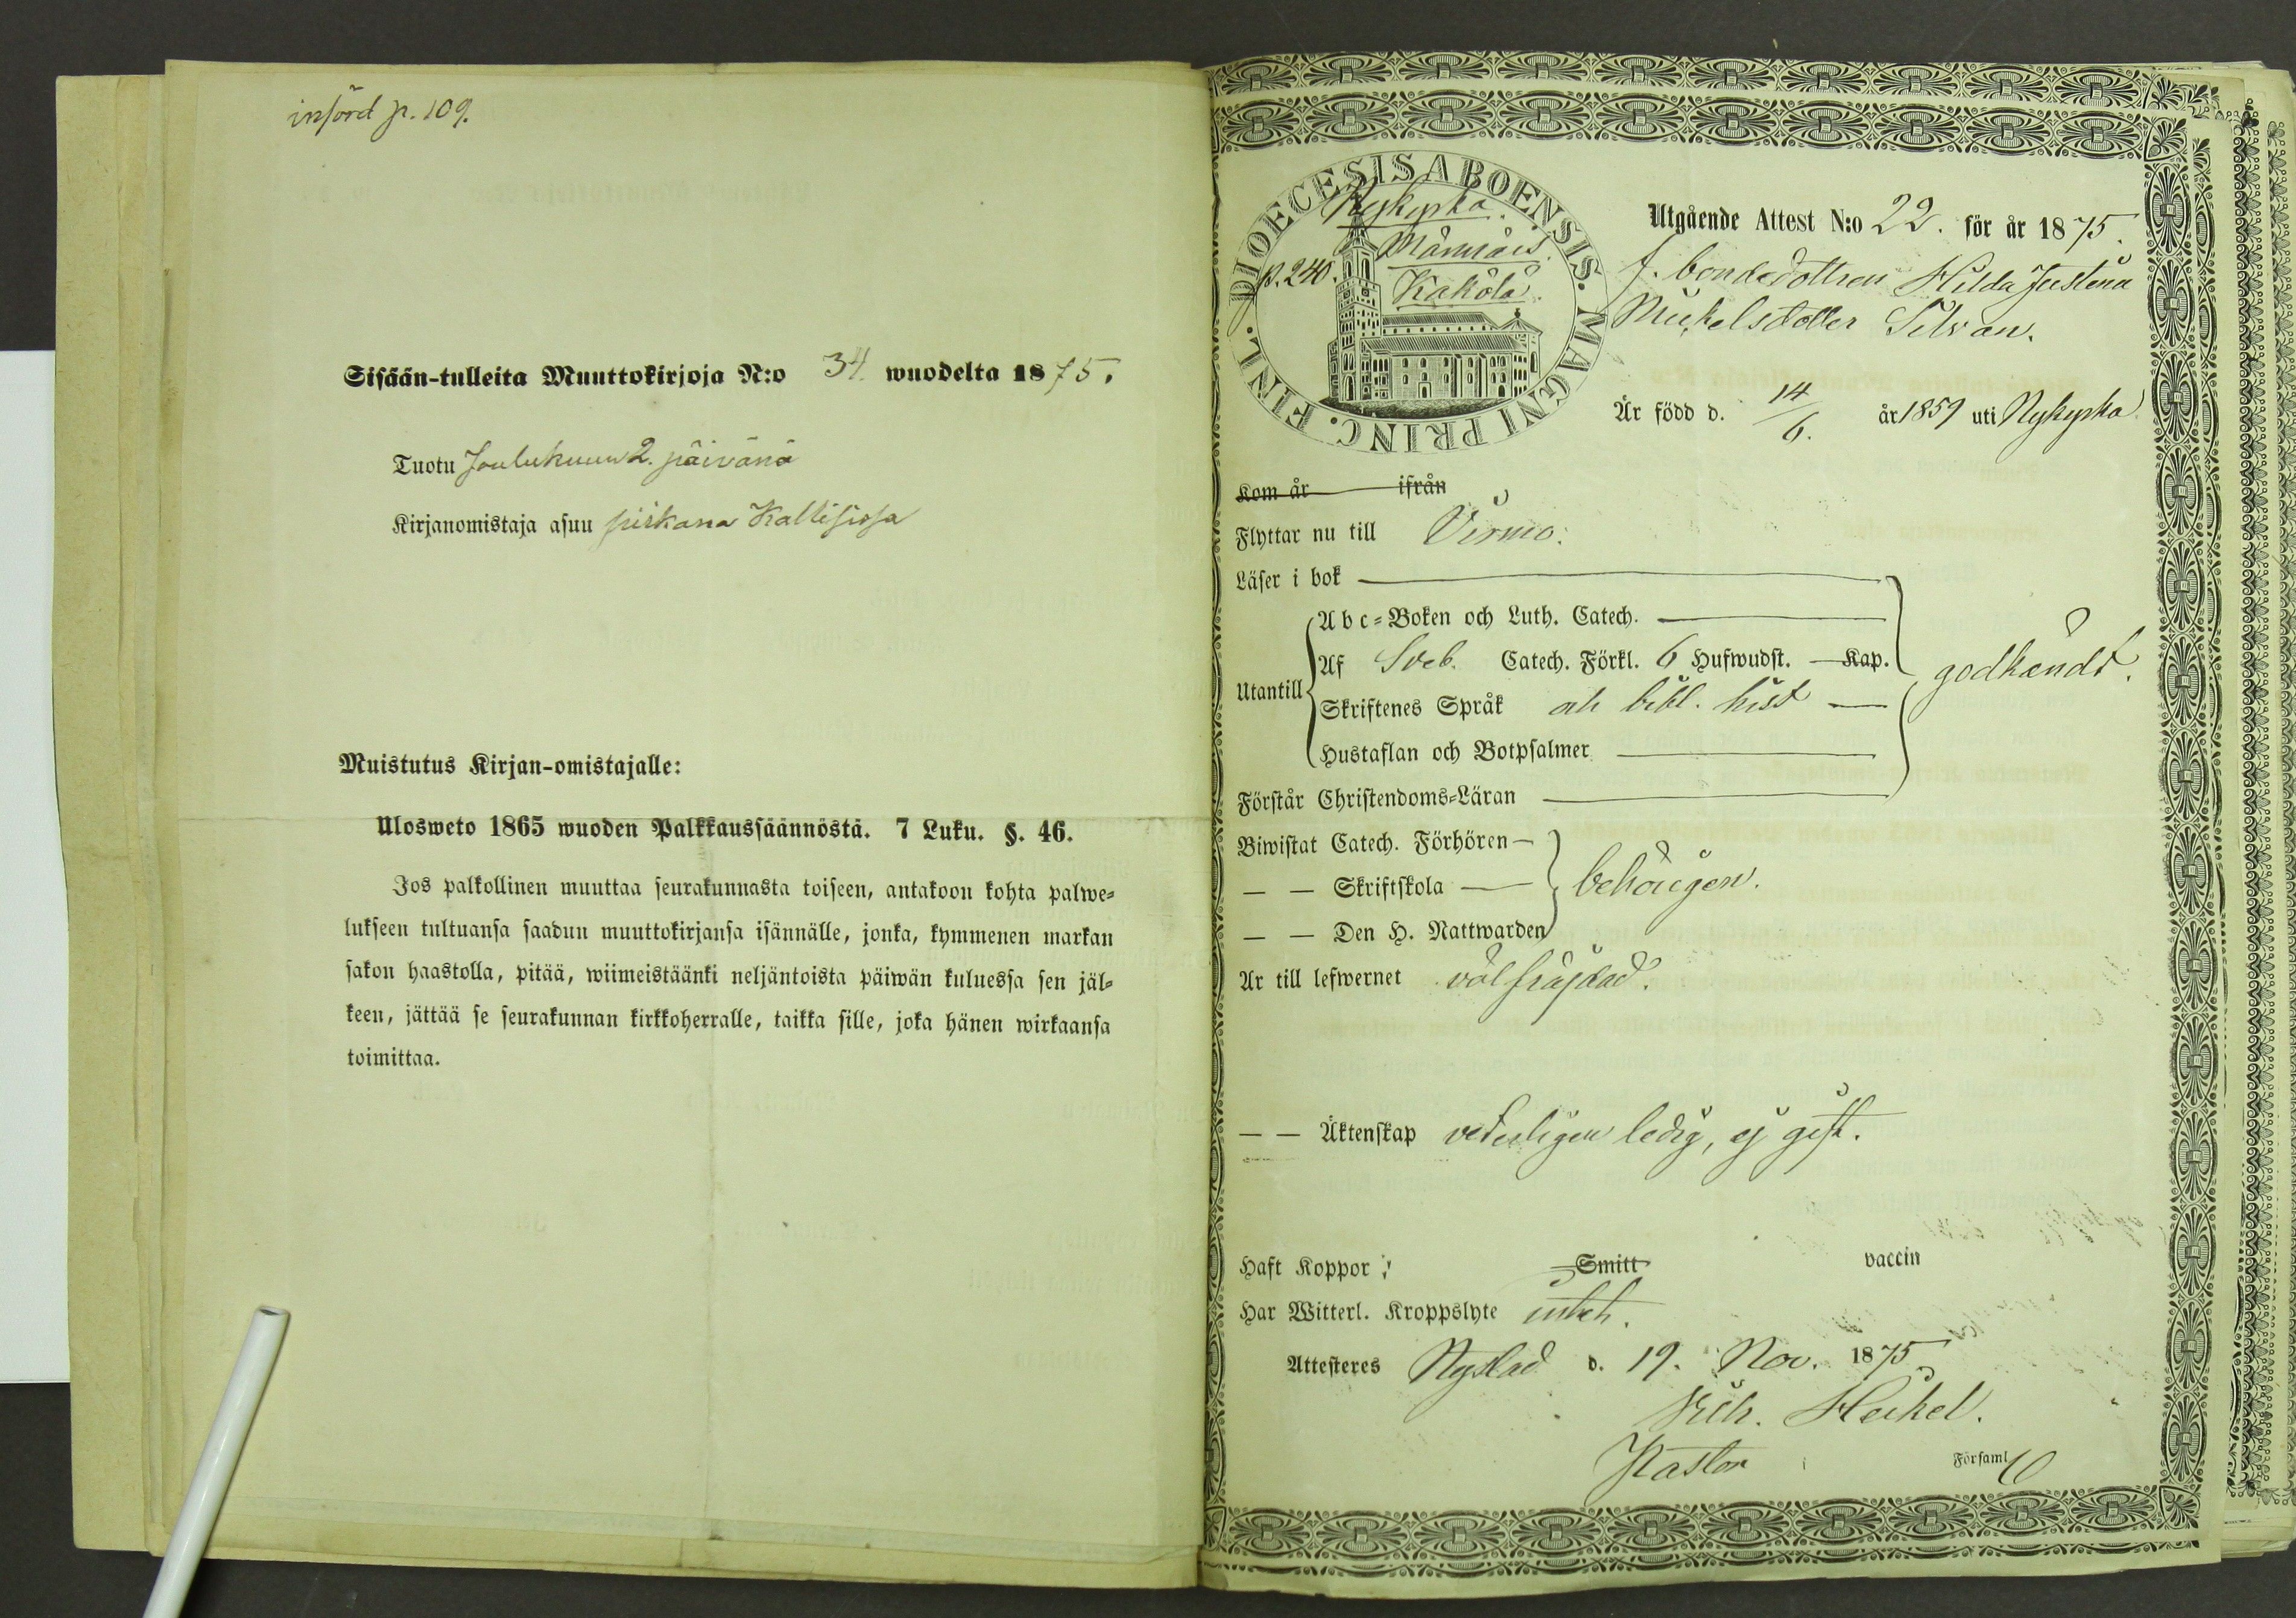 införd p. 109.
Sisään-tulleita Muuttokirjoja N:o 34 wuodelta 1875.
Tuotu Joulukuun 2. päivänä
Kirjanomistaja asuu piikana Kallisissa
Muistutus Kirjan-omistajalle:
Ulosweto 1865 wuoden Palkkaussäännöstä. 7 Luku. §. 46.
Jos palkollinen muuttaa seurakunnasta toiseen, antakoon kohta palwe-
lukseen tultuansa saadun muuttokirjansa isännälle, jonka, kymmenen markan
sakon haastolla, pitää, wiimeistäänki neljäntoista päiwän kuluessa sen jäl-
keen, jättää se seurakunnan kirkkoherralle, taikka sille, joka hänen wirkaansa
toimittaa.
DIOECESIS ABOENSIS. MAGNI PRINC. FINL.
Nykyrka.
Männäis.
p. 240. Kakola.
Utgående Attest N:o 22. för år 1875.
f. bondedottren Hilda Justina
Mickelsdotter Silvan.
Är född d. 14/6. år 1859 uti Nykyrka
Kom år ifrån
Flyttar nu till Virmo.
Läser i bok
Abc-Boken och Luth. Catech.
Utantill
Af Sveb. Catech. Förkl. 6 Hufwudst. Kap.
Skriftenes Språk och bibl. hist
Hustaflan och Botpsalmer
godkändt.
Förstår Christendoms-Läran
Biwistat Catech. Förhören
— — Skriftskola
— — Den H. Nattwarden
behörigen.
Är till lefwernet välfräjdad.
— — Äktenskap veterligen ledig, ej gift.
Haft Koppor Smitt vaccin
Har Witterl. Kroppslyte intet.
Attesteres Nystad d. 19. Nov. 1875
Vilh. Heikel.
Pastor Församl